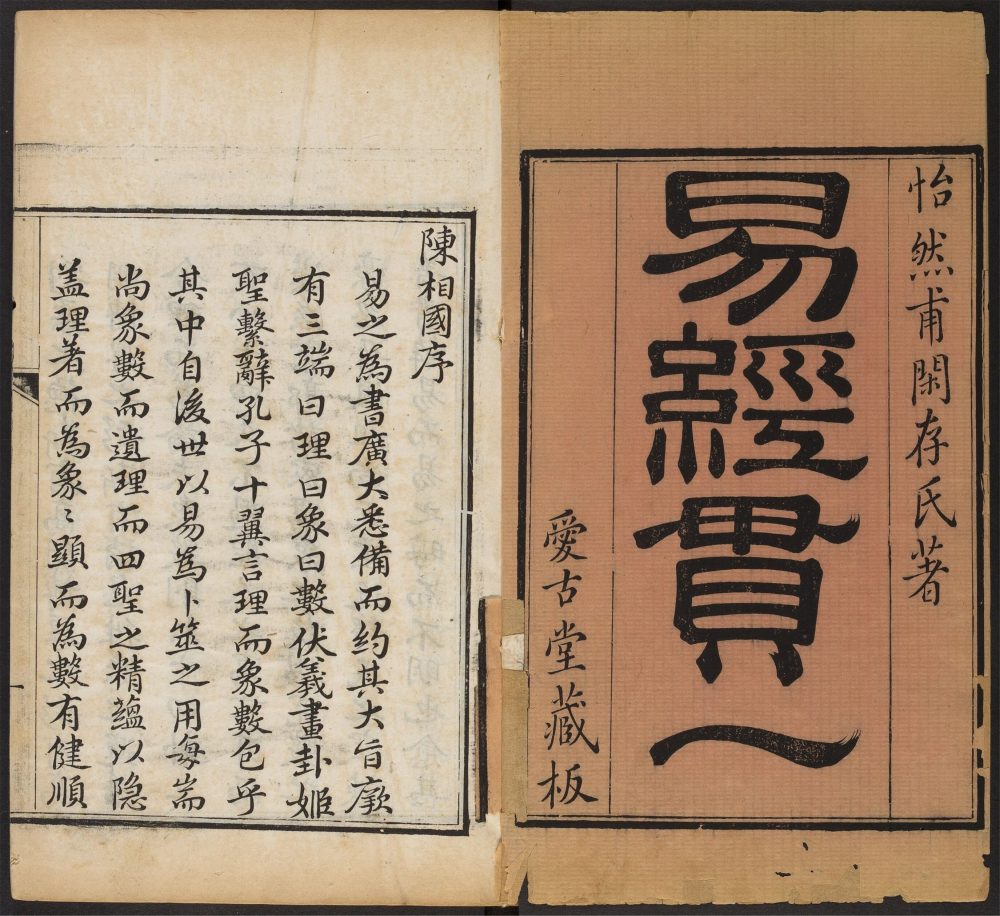 怡然甫閑存氏著
易經貫一
愛古堂藏板
陳相國序
易之為書廣大悉備而約其大旨厥
有三端曰理曰象曰數伏羲畫卦姬
聖繫辭孔子十翼言理而象數包乎
其中自後世以易為卜筮之用每耑
尚象數而遺理而四聖之精蘊以隐
盖理著而為象〻顯而為數有健順